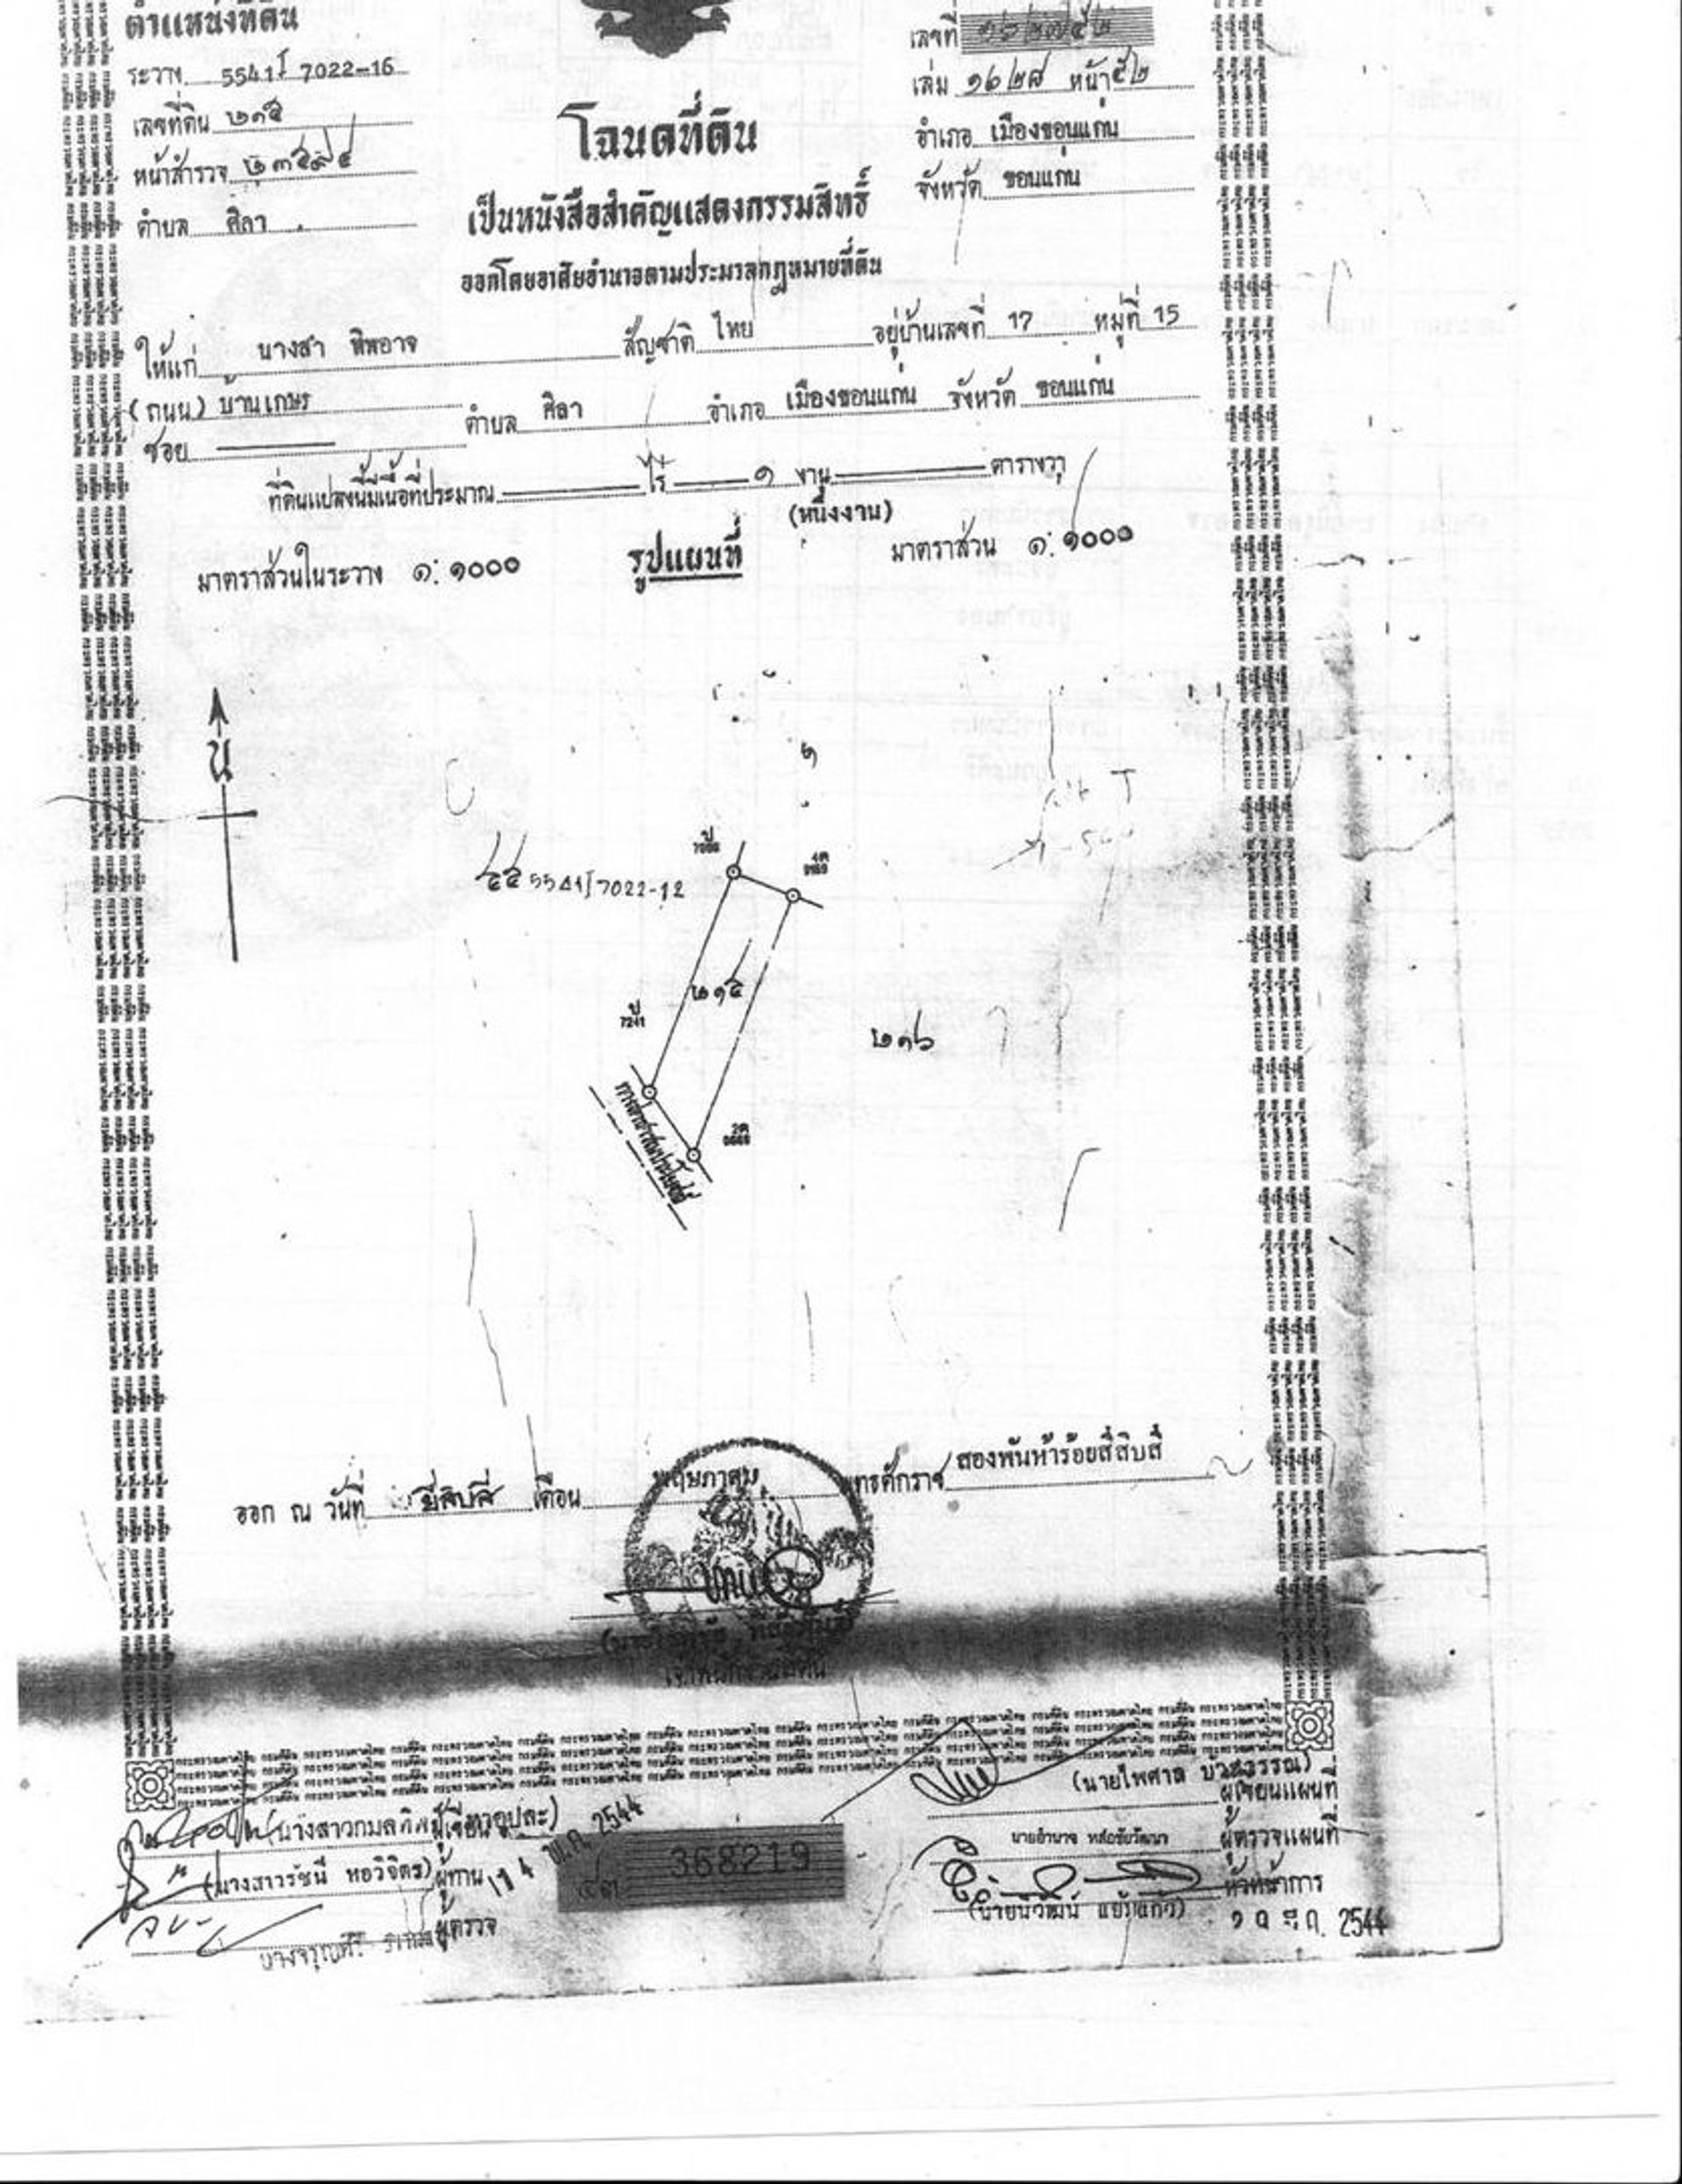 ตำแหน่งที่ดิน
ระวาง 5541 I 7022-16
เลขที่ดิน ๒๑๕
หน้าสำรวจ
ตำบล ศิลา
เลขที่
เล่ม ๑๖๒๘ หน้า ๕๒
อำเภอ เมืองขอนแก่น
จังหวัด ขอนแก่น
โฉนดที่ดิน
เป็นหนังสือสำคัญแสดงกรรมสิทธิ์
ออกโดยอาศัยอำนาจตามประมวลกฎหมายที่ดิน
ให้แก่ นางสา ทิพอาจ สัญชาติ ไทย อยู่บ้านเลขที่ 17 หมู่ที่ 15
(ถนน) บ้านเกษร ตำบล ศิลา อำเภอ เมืองขอนแก่น จังหวัด ขอนแก่น
ซอย
ที่ดินแปลงนี้มีเนื้อที่ประมาณ ไร่ ๑ งาน ตารางวา
(หนึ่งงาน)
มาตราส่วนในระวาง ๑:๑๐๐๐ รูปแผนที่ มาตราส่วน ๑:๑๐๐๐
น
5541 I 7022-12
๒๑๕
7241
๒๑๖
ออก ณ วันที่ ยี่สิบสี่ เดือน พฤษภาคม พุทธศักราช สองพันห้าร้อยสี่สิบสี่
เจ้าพนักงานที่ดิน
(นายไพศาล บวรสุวรรณ)
ผู้เขียนแผนที่
ผู้เขียน
นายอำนาจ หล่อชัยวัฒนา ผู้ตรวจแผนที่
(นางสาวรัชนี หอวิจิตร) ผู้ทาน
14 พ.ค. 2544
๔๓ 368219
หัวหน้าการ
(นายนิวัฒน์ แย้มแก้ว)
ผู้ตรวจ
2544